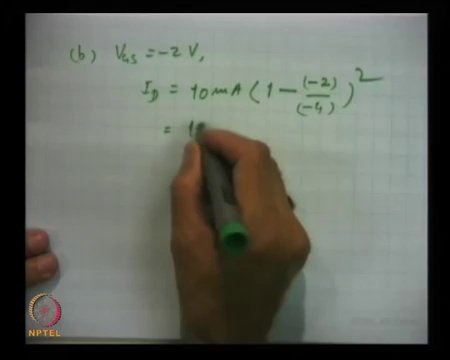 (b) VGS = -2 V,
ID = 10 mA ( 1 - (-2)/(-4) )²
= 10
NPTEL